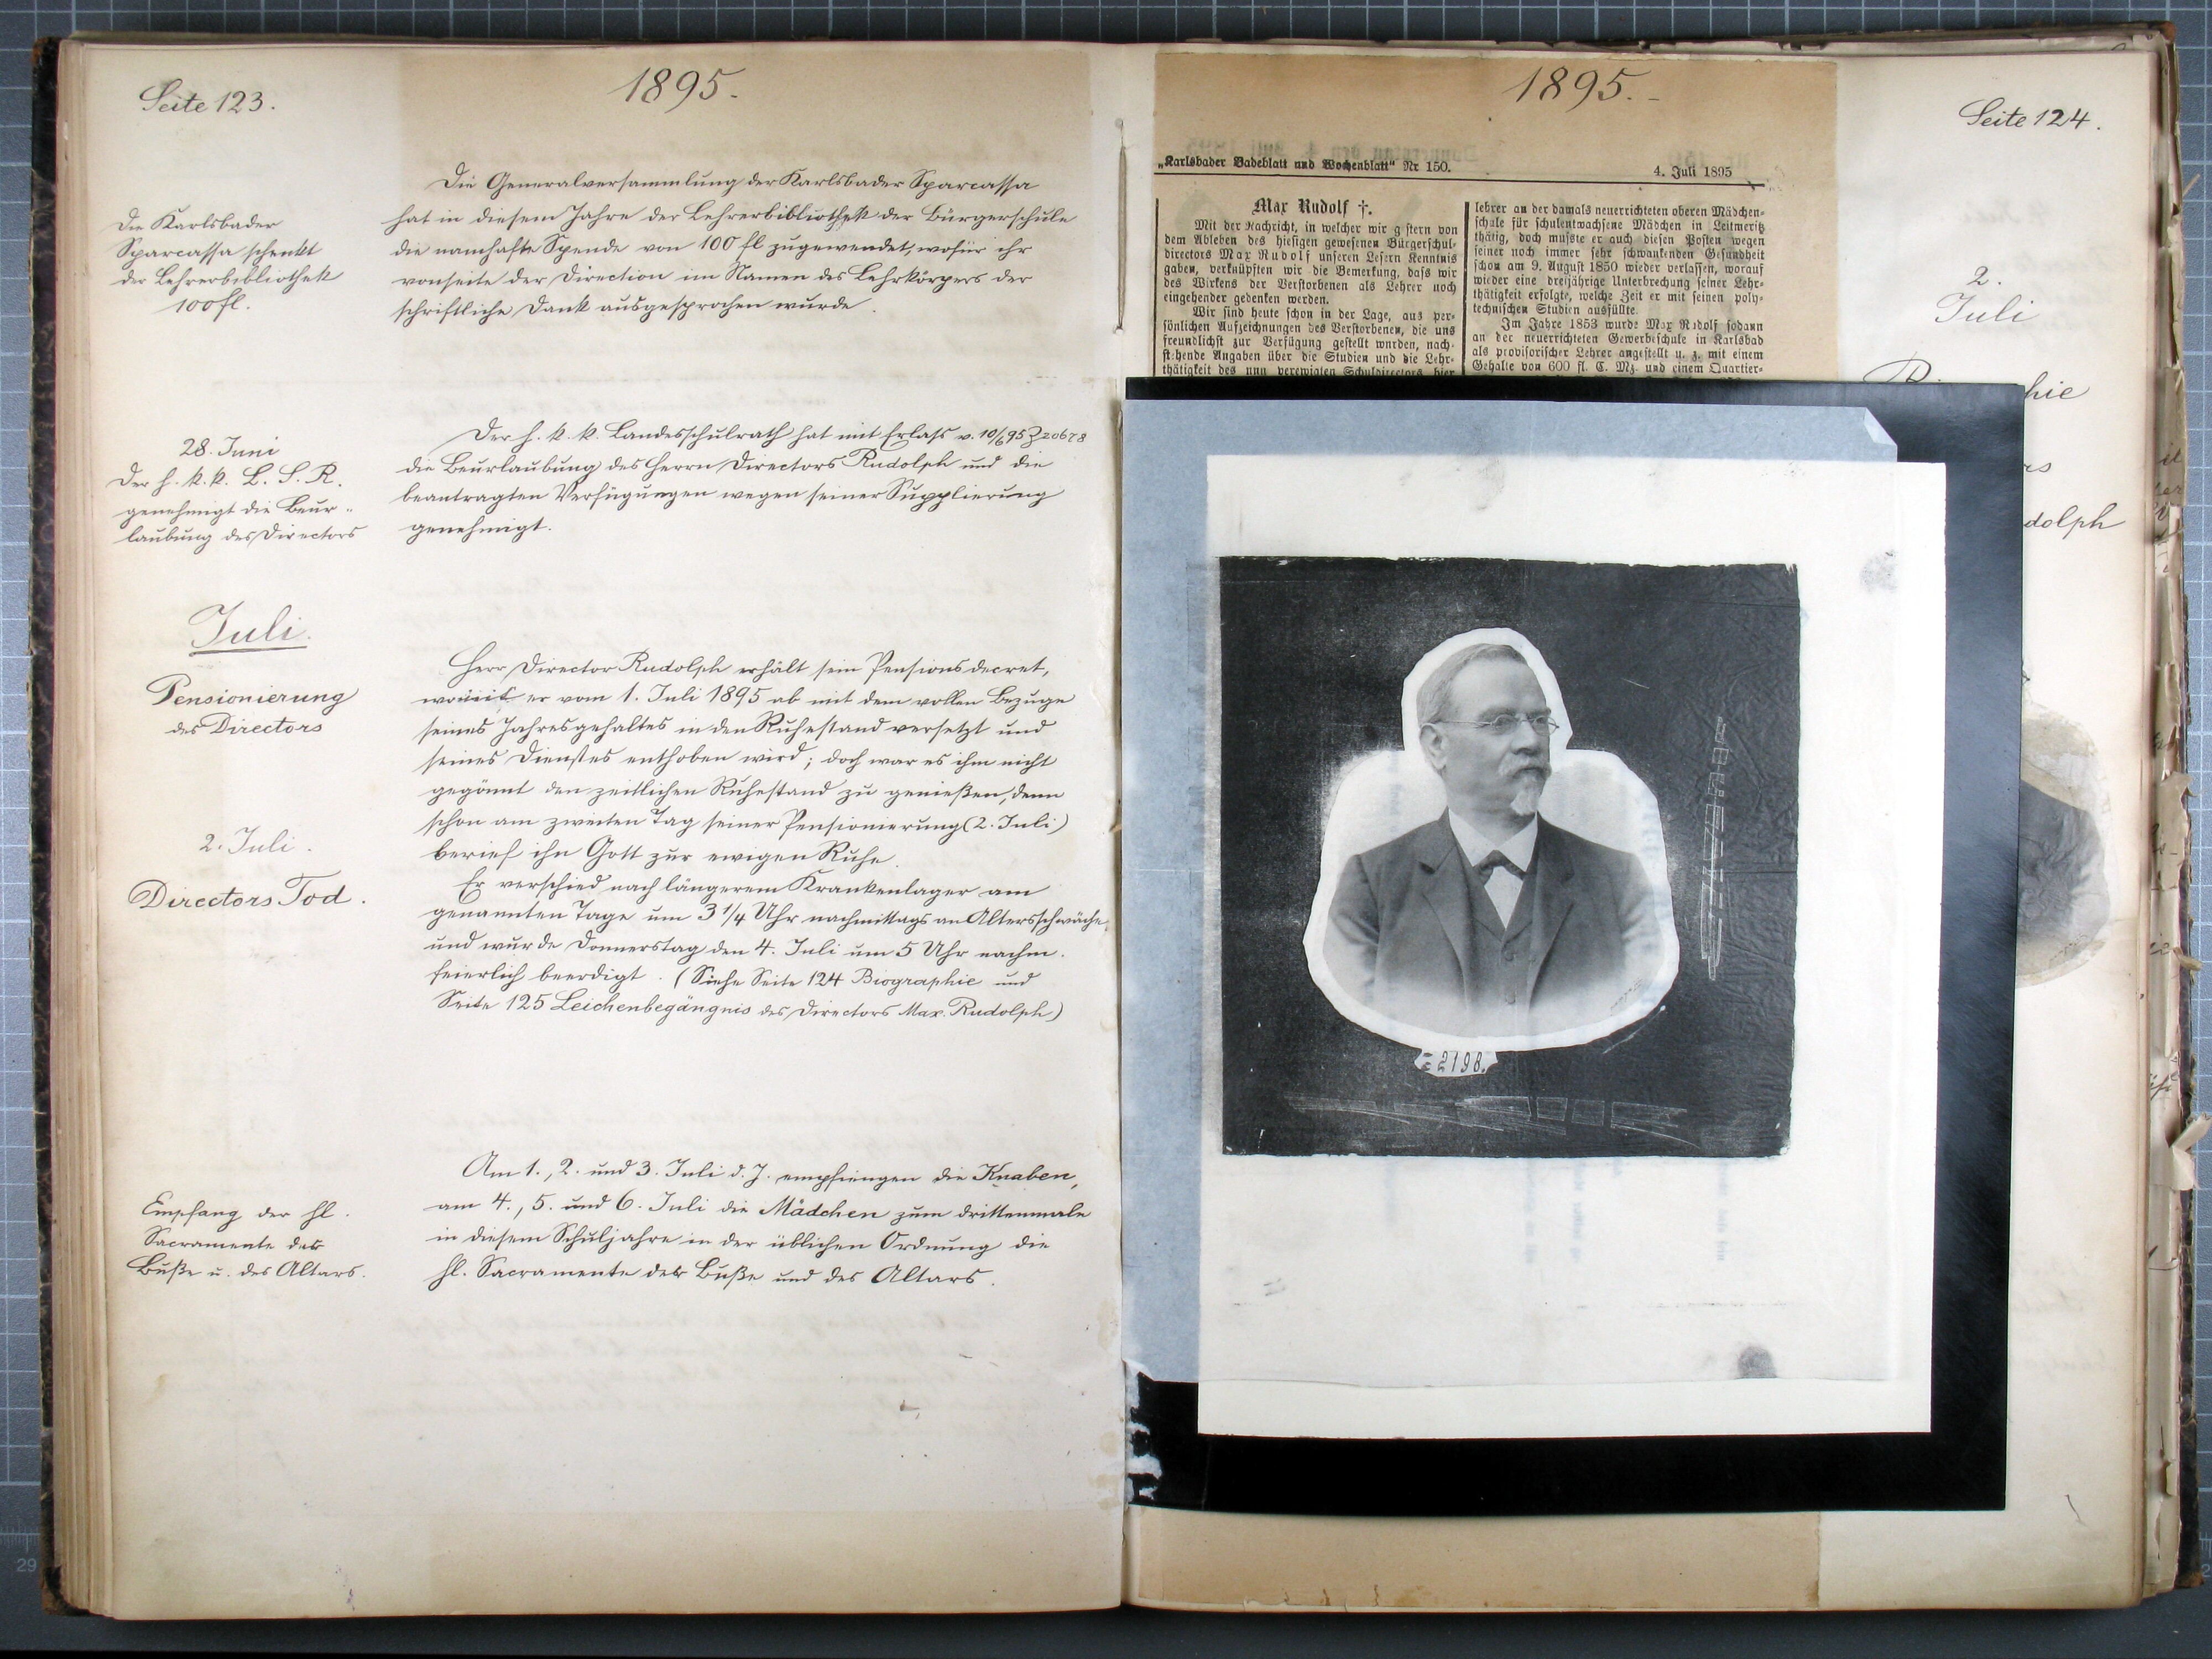 Seite 123.
1895.
Die Karlsbader
Sparcassa schenkt
der Lehrerbibliothek
100 fl.
Die Generalversammlung der Karlsbader Sparcassa
hat in diesem Jahre der Lehrerbibliothek der Bürgerschule
die namhafte Spende von 100 fl zugewendet, wofür ihr
vonseite der Direction im Namen des Lehrkörpers der
schriftliche Dank ausgesprochen wurde.
28. Juni
Der h. k. k. L. S. R.
genehmigt die Beur-
laubung des Directors
Der h. k. k. Landesschulrath hat mit Erlass v. 10/6 95 Z 20678
die Beurlaubung des Herrn Directors Rudolph und die
beantragten Verfügungen wegen seiner Supplierung
genehmigt.
Juli.
Pensionierung
des Directors
Herr Director Rudolph erhält sein Pensionsdecret,
womit er vom 1. Juli 1895 ab mit dem vollen Bezuge
seines Jahresgehaltes in den Ruhestand versetzt und
seines Dienstes enthoben wird; doch war es ihm nicht
gegönnt den zeitlichen Ruhestand zu genießen, denn
schon am zweiten Tag seiner Pensionierung (2. Juli)
berief ihn Gott zur ewigen Ruhe.
2. Juli.
Directors Tod.
Er verschied nach längerem Krankenlager am
genannten Tage um 3 1/4 Uhr nachmittags an Altersschwäche
und wurde Donnerstag den 4. Juli um 5 Uhr nachm.
feierlich beerdigt. (Siehe Seite 124 Biographie und
Seite 125 Leichenbegängnis des Directors Max. Rudolph)
Empfang der hl.
Sacramente der
Buße u. des Altars.
Am 1., 2. und 3. Juli d. J. empfiengen die Knaben,
am 4., 5. und 6. Juli die Mädchen zum drittenmale
in diesem Schuljahre in der üblichen Ordnung die
hl. Sacramente der Buße und des Altars.
1895.-
Seite 124.
„Karlsbader Badeblatt und Wochenblatt" Nr 150.
4. Juli 1895
Max Rudolf †.
Mit der Nachricht, in welcher wir g stern von
dem Ableben des hiesigen gewesenen Bürgerschul-
directors Max Rudolf unseren Lesern Kenntnis
gaben, verknüpften wir die Bemerkung, dass wir
des Wirkens der Verstorbenen als Lehrer noch
eingehender gedenken werden.
Wir sind heute schon in der Lage, aus per-
sönlichen Aufzeichnungen des Verstorbenen, die uns
freundlichst zur Verfügung gestellt wurden, nach-
stehende Angaben über die Studien und die Lehr-
thätigkeit des nun verewigten Schuldirectors hier
lehrer an der damals neuerrichteten oberen Mädchen-
schule für schulentwachsene Mädchen in Leitmeritz
thätig, doch musste er auch diesen Posten wegen
seiner noch immer sehr schwankenden Gesundheit
schon am 9. August 1850 wieder verlassen, worauf
wieder eine dreijährige Unterbrechung seiner Lehr-
thätigkeit erfolgte, welche Zeit er mit seinen poly-
technischen Studien ausfüllte.
Im Jahre 1853 wurde Max Rudolf sodann
an der neuerrichteten Gewerbeschule in Karlsbad
als provisorischer Lehrer angestellt u. z. mit einem
Gehalte von 600 fl. C. Mz. und einem Quartier-
2.
Juli
hie
rs
dolph
2198.